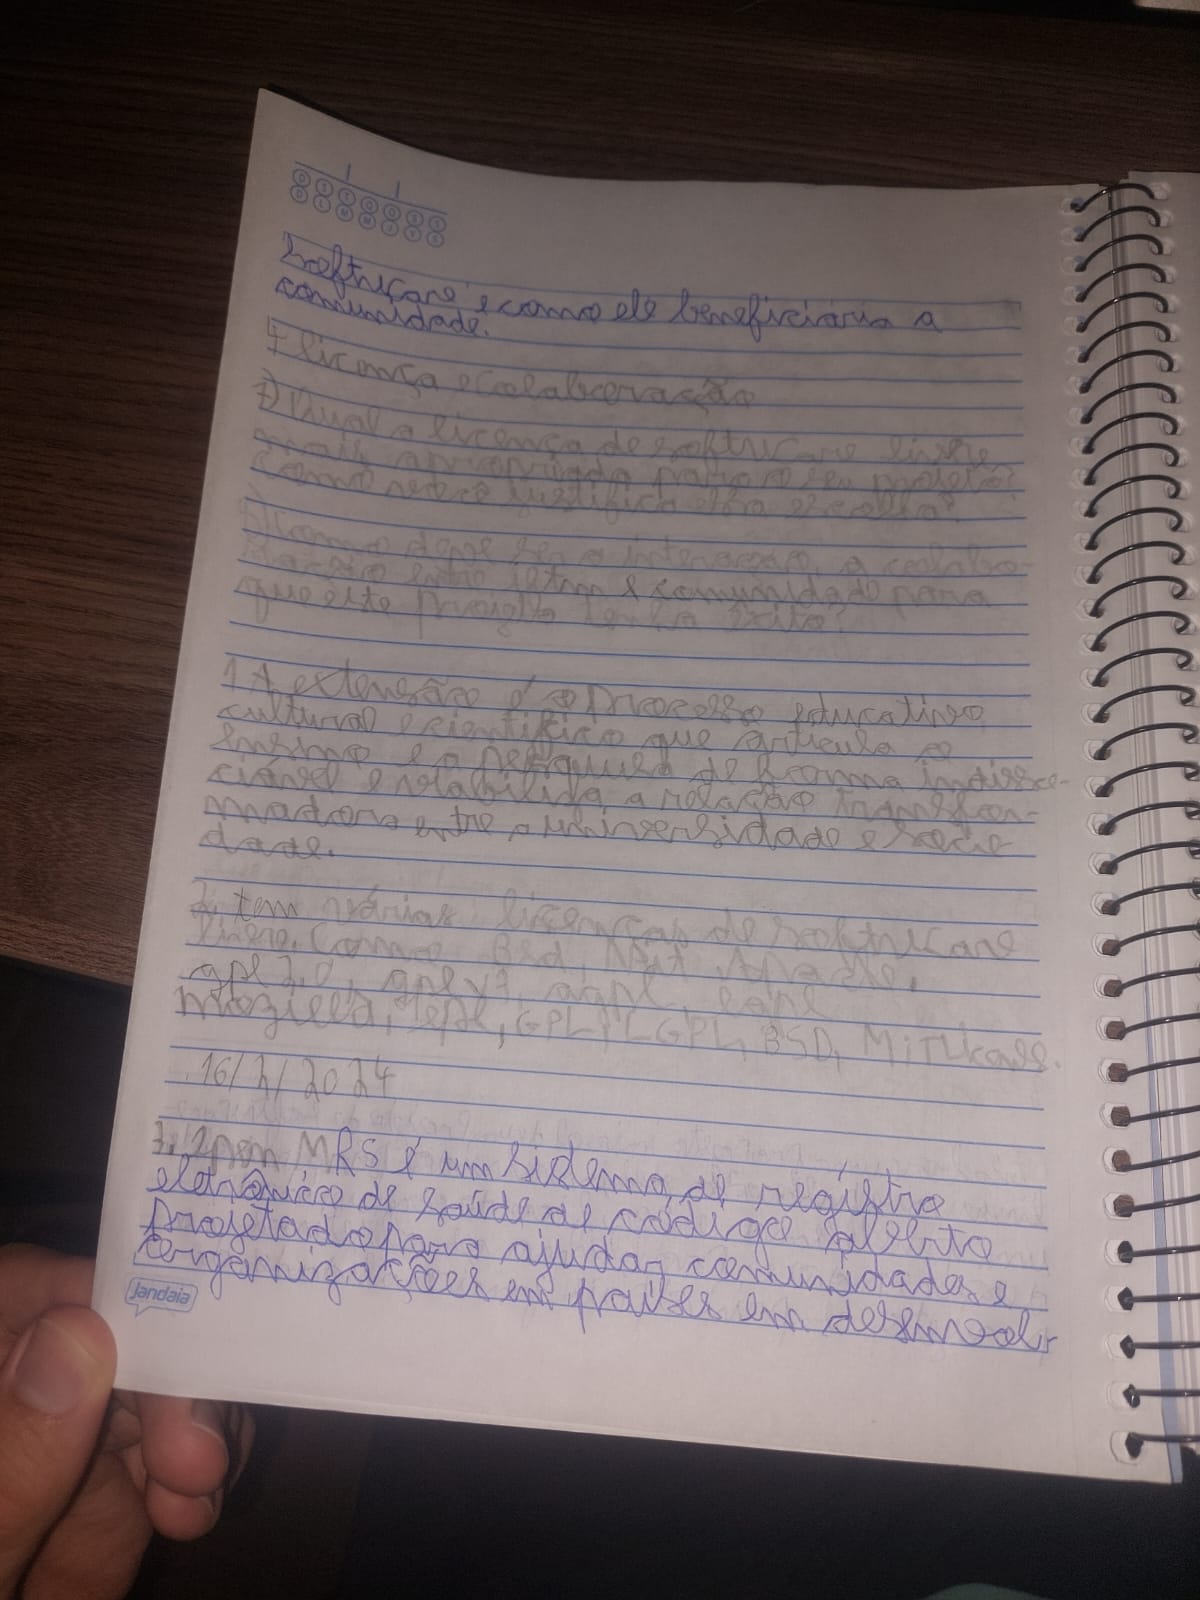 Software e como ele beneficiária a
comunidade.
4 licença e colaboração
a) Qual a licença de software livre
mais apropriada para o seu projeto?
Como você justifica essa escolha?
b) como deve ser a interação, a colabo-
ração entre e comunidade para
que este projeto tenha êxito?
1 A extensão é o processo educativo
cultural e cientifico que articula o
ensino e a pesquisa de forma indisso-
ciável e a relação transfor-
madora entre a universidade e socie
dade.
2, tem várias licenças de software
livre. Como Bsd, Mit, Apache,
gpl 3.0, gplv3, agpl, lgpl
mozilla, epl, GPL, LGPL, BSD,
16/2/2024
3. MRS é um sistema de registro
eletrônico de saúde de código aberto
projetado para ajudar comunidades e
organizações em países em desenvol
jandaia